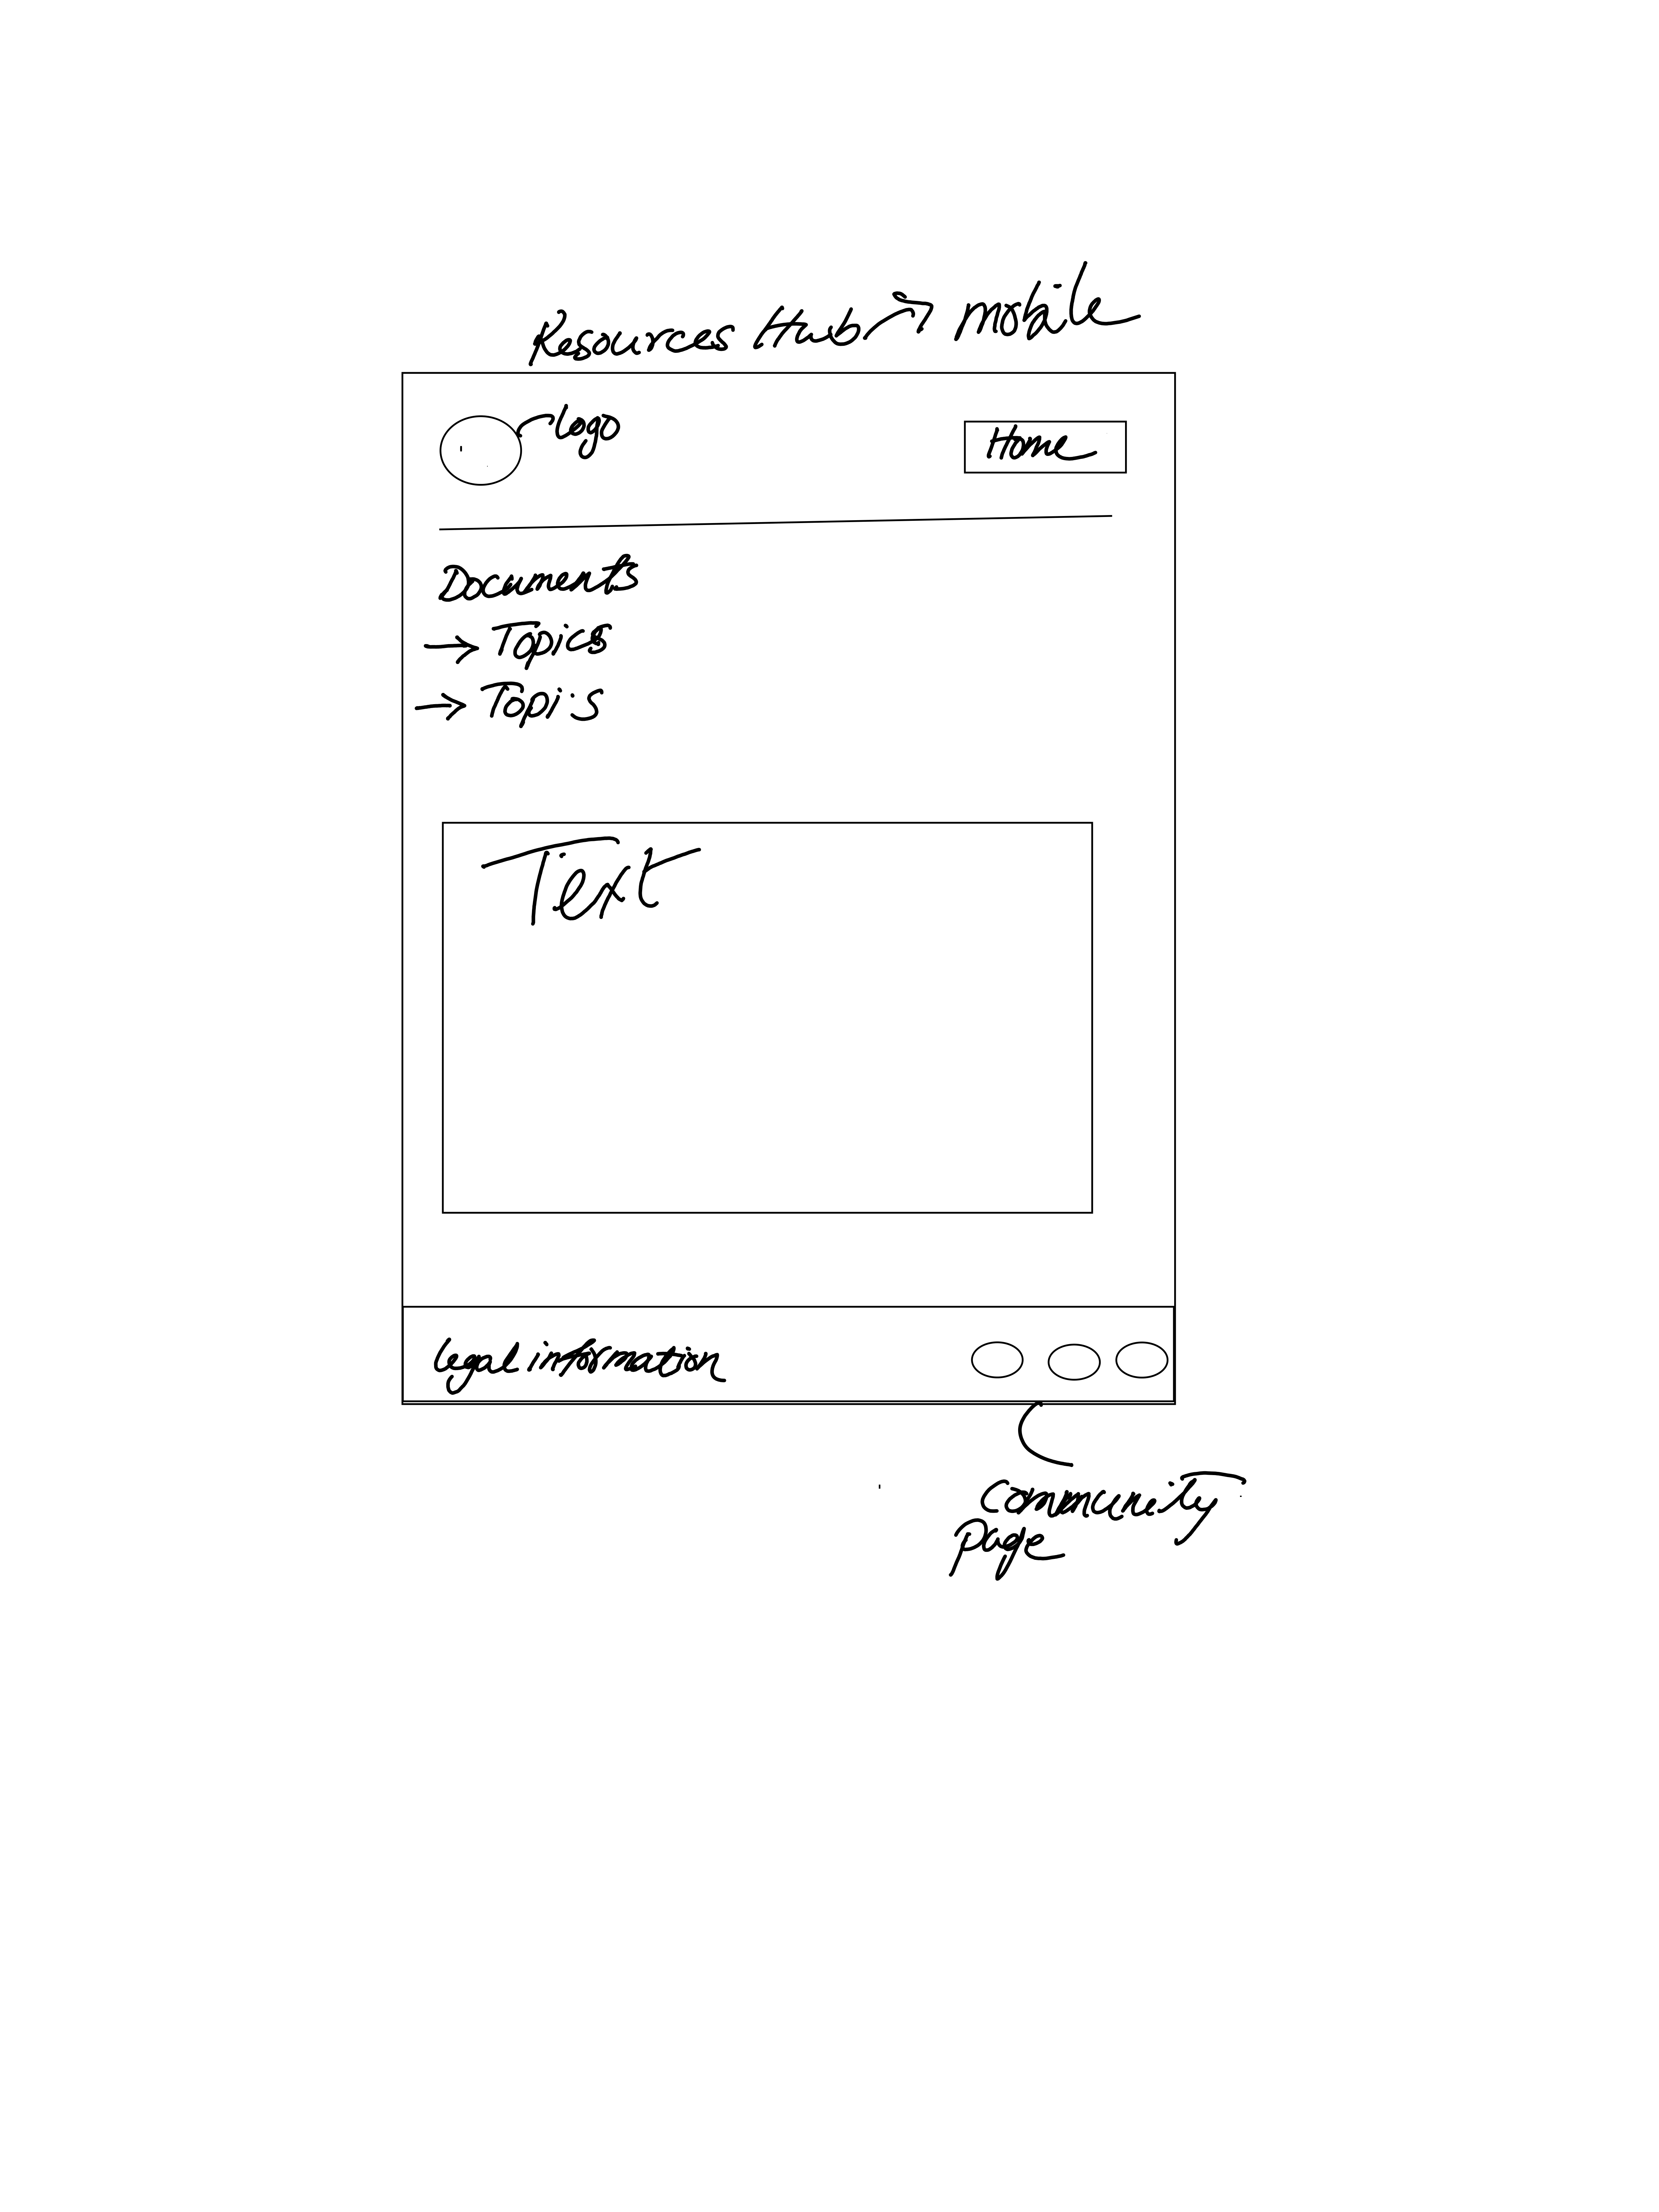 Resources Hub → mobile
Logo
Home
Documents
→ Topics
→ Topis
Text
Legal information
Community
Page